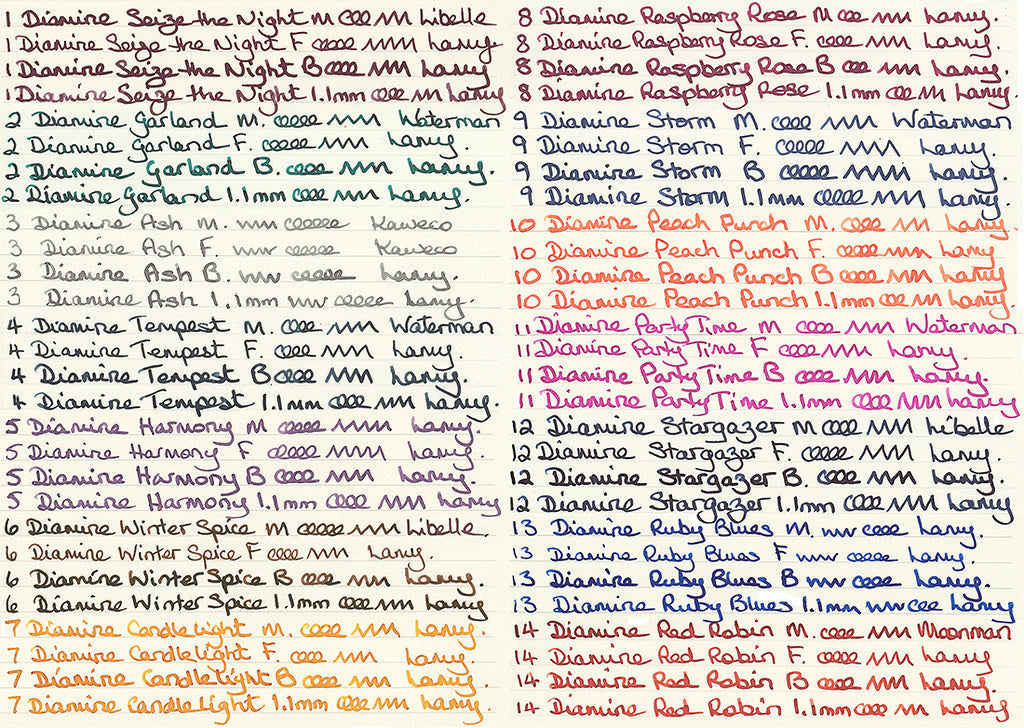 1 Diamine Seize the Night M Libelle
1 Diamine Seize the Night F Lamy
1 Diamine Seize the Night B Lamy
1 Diamine Seize the Night 1.1mm Lamy
2 Diamine Garland M. Waterman
2 Diamine Garland F. Lamy.
2 Diamine Garland B. Lamy.
2 Diamine Garland 1.1mm Lamy.
3 Diamine Ash M. Kaweco
3 Diamine Ash F. Kaweco
3 Diamine Ash B. Lamy.
3 Diamine Ash 1.1mm Lamy.
4 Diamine Tempest M. Waterman
4 Diamine Tempest F. Lamy.
4 Diamine Tempest B Lamy.
4 Diamine Tempest 1.1mm Lamy.
5 Diamine Harmony M Lamy.
5 Diamine Harmony F Lamy.
5 Diamine Harmony B Lamy.
5 Diamine Harmony 1.1mm Lamy
6 Diamine Winter Spice M Libelle.
6 Diamine Winter Spice F Lamy.
6 Diamine Winter Spice B Lamy.
6 Diamine Winter Spice 1.1mm Lamy
7 Diamine Candlelight M. Lamy.
7 Diamine Candlelight F. Lamy.
7 Diamine Candlelight B Lamy.
7 Diamine Candlelight 1.1mm Lamy.
8 Diamine Raspberry Rose M Lamy.
8 Diamine Raspberry Rose F. Lamy.
8 Diamine Raspberry Rose B Lamy.
8 Diamine Raspberry Rose 1.1mm Lamy.
9 Diamine Storm M. Waterman
9 Diamine Storm F. Lamy.
9 Diamine Storm B Lamy.
9 Diamine Storm 1.1mm Lamy.
10 Diamine Peach Punch M. Lamy.
10 Diamine Peach Punch F. Lamy
10 Diamine Peach Punch B Lamy
10 Diamine Peach Punch 1.1mm Lamy.
11 Diamine Party Time M Waterman
11 Diamine Party Time F Lamy.
11 Diamine Party Time B Lamy.
11 Diamine Party Time 1.1mm Lamy
12 Diamine Stargazer M Libelle
12 Diamine Stargazer F. Lamy.
12 Diamine Stargazer B. Lamy.
12 Diamine Stargazer 1.1mm Lamy
13 Diamine Ruby Blues M. Lamy.
13 Diamine Ruby Blues F Lamy.
13 Diamine Ruby Blues B Lamy.
13 Diamine Ruby Blues 1.1mm Lamy
14 Diamine Red Robin M. Moonman
14 Diamine Red Robin F. Lamy
14 Diamine Red Robin B Lamy.
14 Diamine Red Robin 1.1mm Lamy